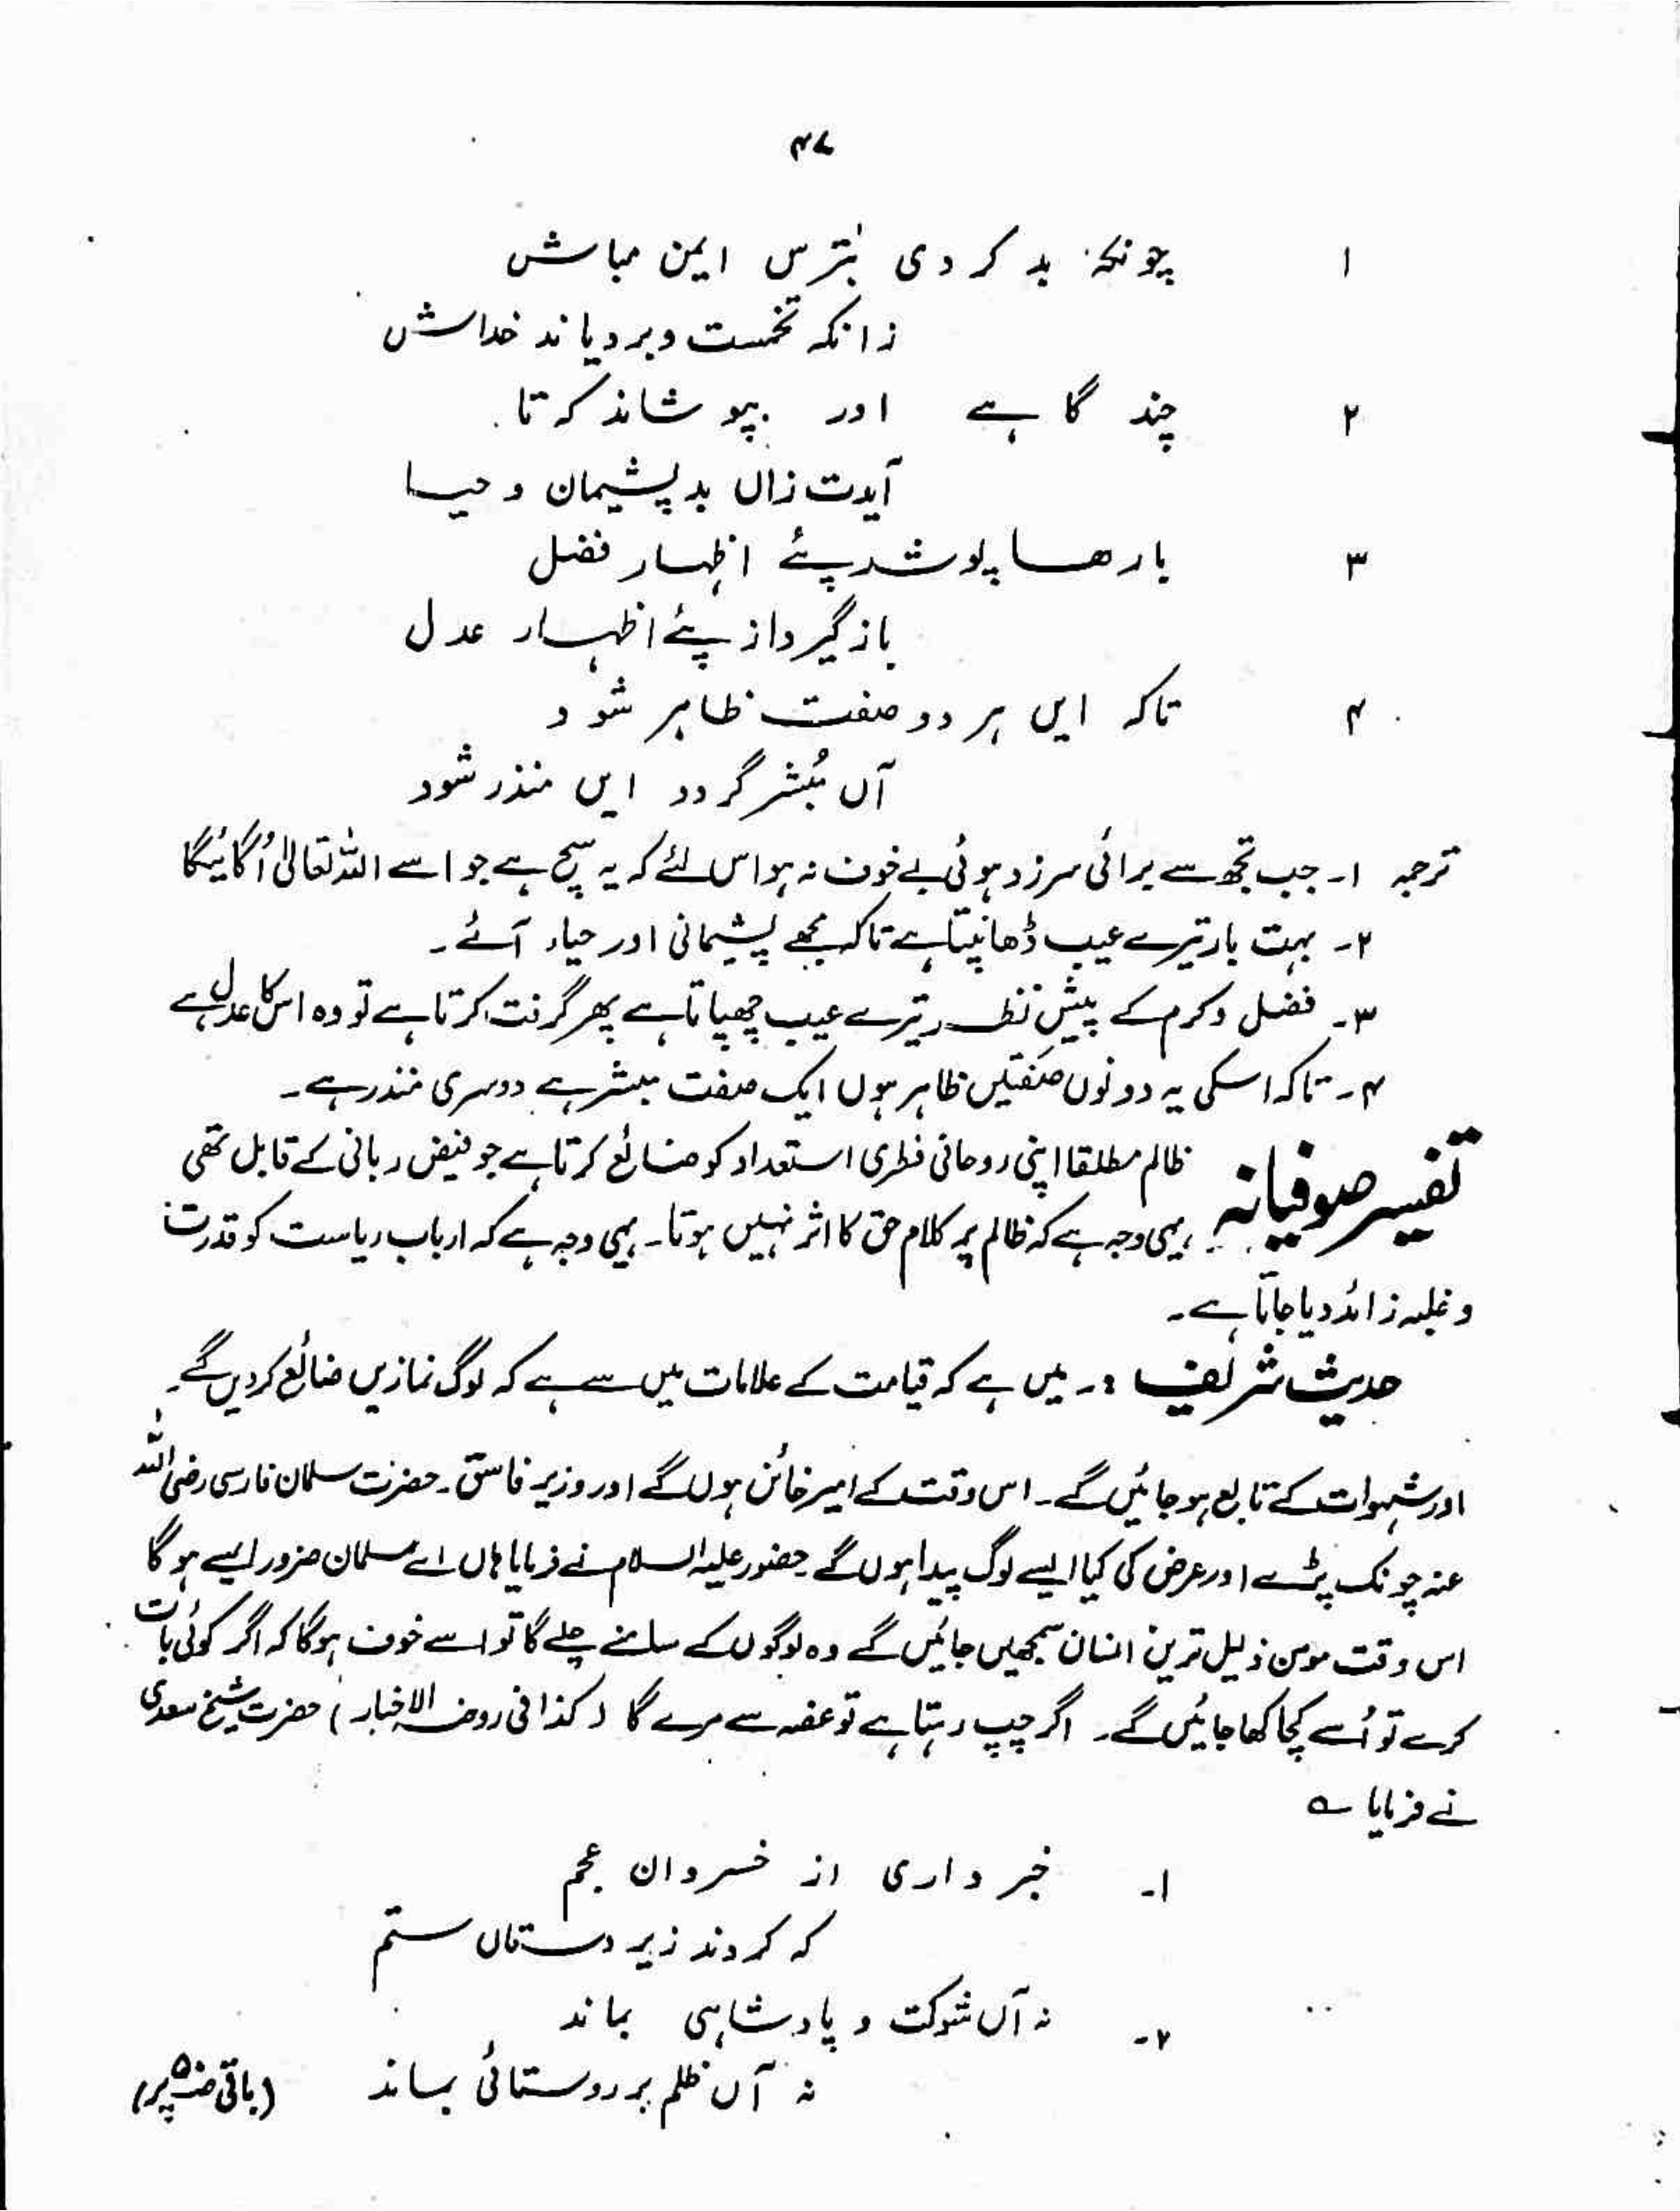 ۴۷
۱ چونکہ بد کردی بترس ایمن مباش
زانکہ تخمست وبر دیاند خداش
۲ چند گاہے اور بپوشاند کہ تا
آیدت زاں بد پشیمان و حیا
۳ بارھا پوشد پئے اظہار فضل
باز گیرد از پئے اظہار عدل
۴ تاکہ ایں ہر دو صفت ظاہر شود
آں مُبشر گردد ایں منذر شود
ترجمہ ۱۔ جب تجھ سے برائی سرزد ہوئی بے خوف نہ ہو اس لئے کہ یہ بیج ہے جو اسے اللہ تعالیٰ اُگائیگا
۲۔ بہت بار تیرے عیب ڈھانپتا ہے تاکہ تجھے پشیمانی اور حیاء آئے۔
۳۔ فضل وکرم کے پیشِ نظر تیرے عیب چھپاتا ہے پھر گرفت کرتا ہے تو وہ اس کا عدل ہے
۴۔ تاکہ اسکی یہ دونوں صفتیں ظاہر ہوں ایک صفت مبشر ہے دوسری منذر ہے۔
تفسیر صوفیانہ ظالم مطلقا اپنی روحانی فطری استعداد کو ضائع کرتا ہے جو فیض ربانی کے قابل تھی
یہی وجہ ہے کہ ظالم پر کلام حق کا اثر نہیں ہوتا۔ یہی وجہ ہے کہ ارباب ریاست کو قدرت
و غلبہ زائد دیا جاتا ہے۔
حدیث شریف :۔ میں ہے کہ قیامت کے علامات میں سے ہے کہ لوگ نمازیں ضائع کردیں گے۔
اور شہوات کے تابع ہو جائیں گے۔ اس وقت کے امیر خائن ہوں گے اور وزیر فاسق۔ حضرت سلمان فارسی رضی اللہ
عنہ چونک پڑے اور عرض کی کیا ایسے لوگ پیدا ہوں گے حضور علیہ السلام نے فرمایا ہاں اے سلمان ضرور ایسے ہو گا
اس وقت مومن ذلیل ترین انسان سمجھیں جائیں گے وہ لوگوں کے سامنے چلے گا تو اسے خوف ہوگا کہ اگر کوئی بات
کرے تو اُسے کچا کھا جائیں گے۔ اگر چپ رہتا ہے تو غصہ سے مرے گا (کذا فی روض الاخبار) حضرت شیخ سعدی
نے فرمایا ؎
۱۔ خبر داری از خسروان عجم
کہ کردند زیر دستاں ستم
۲۔ نہ آں شوکت و پادشاہی بماند
نہ آں ظلم بر روستائی بماند (باقی صـ۵۰ پر)